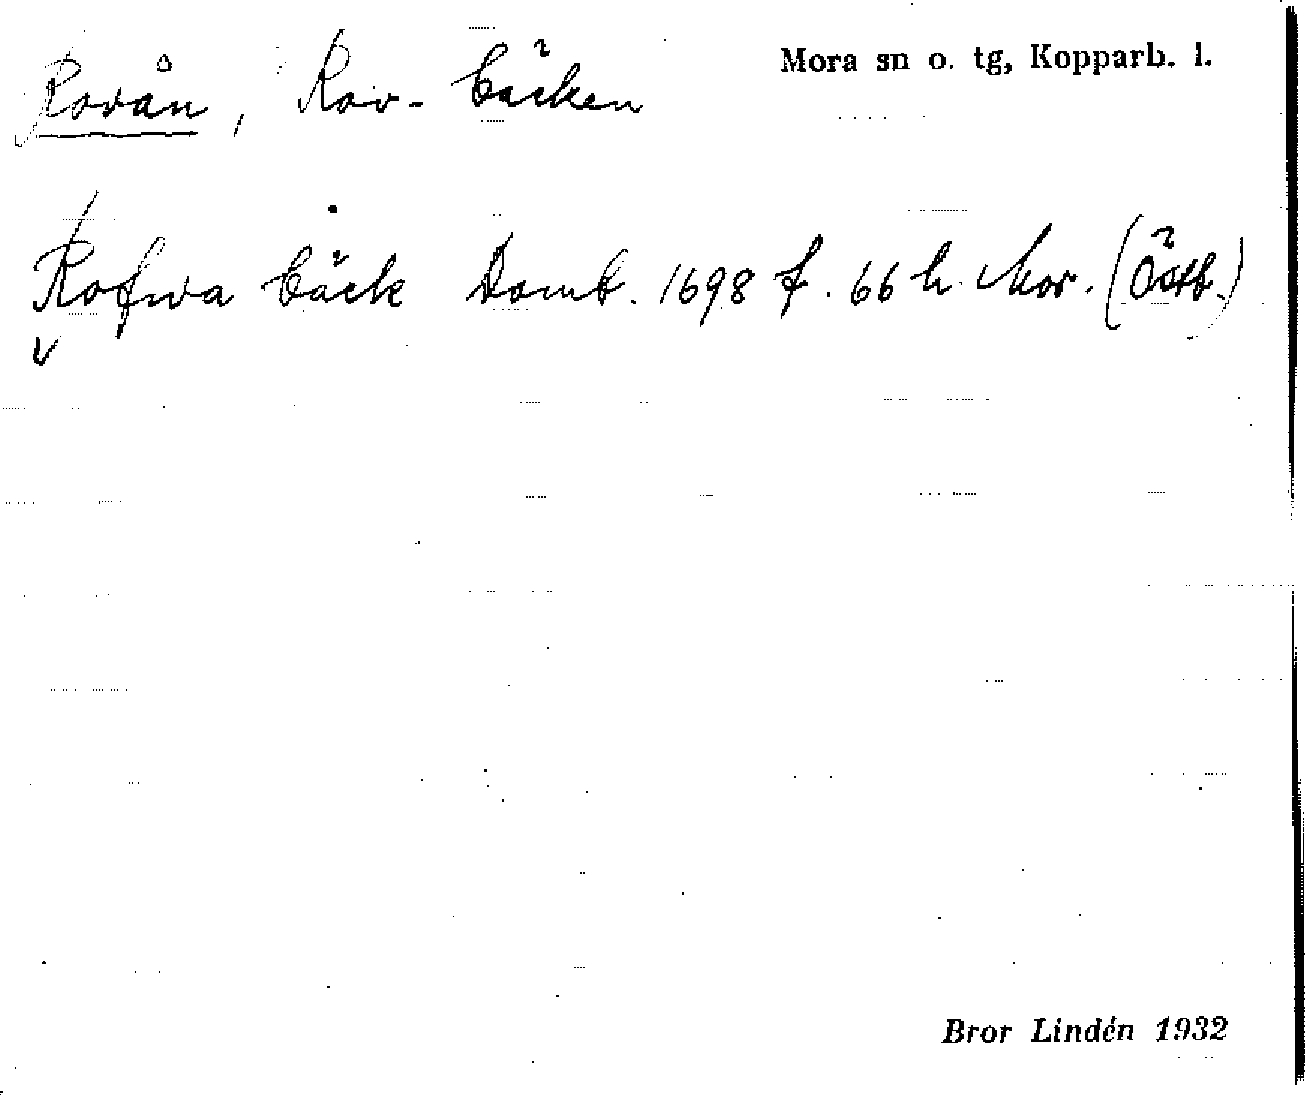 Rovån, Rov-bäcken
Mora sn o. tg, Kopparb. l.
Rofwa bäck Domb. 1698 f. 66 h. Mor. (Östb.)
v
Bror Lindén 1932